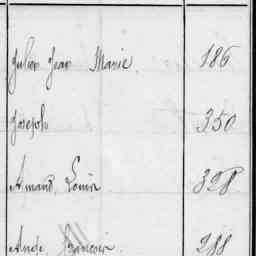 Julien Jean Marie. 186
Joseph 350
Armand, Louis 328
Ange, François. 288